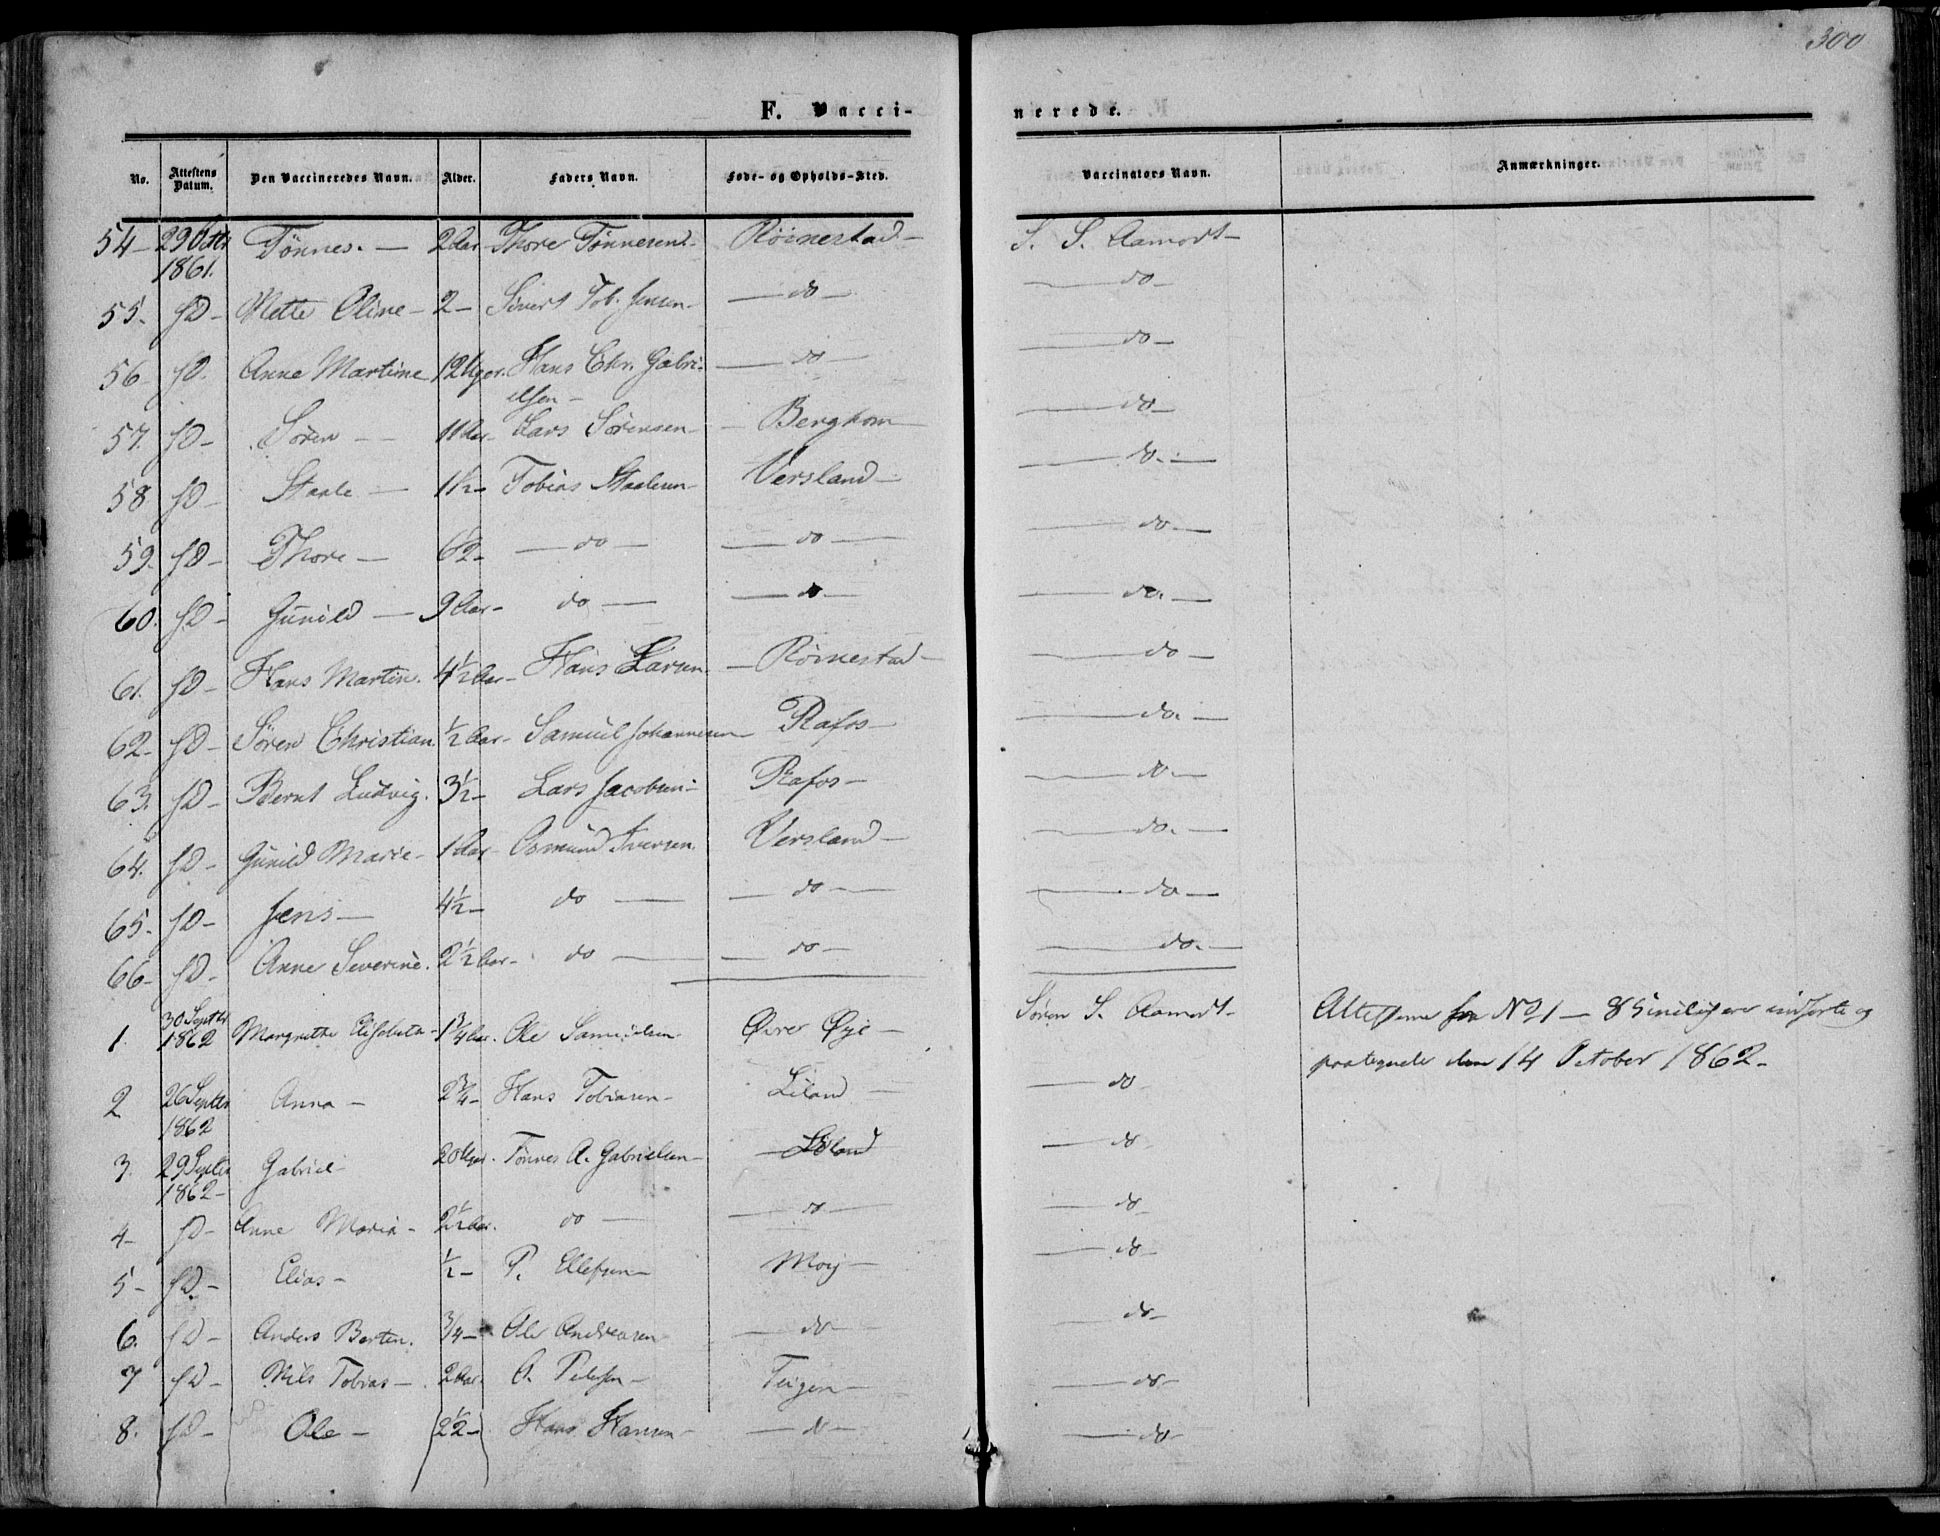 300
F. Vacci-
nerede.
No. Attestens Datum. Den Vaccineredes Navn. Alder. Faders Navn. Føde- og Opholds-Sted. Vaccinators Navn. Anmærkninger.
54- 29 Octbr 1861. Tønnes. - 2 Aar- Thore Tønnesen. Røinestad- S. S. Aamodt-
55- sD- Mette Oline- 2- Sivert Tob. Jensen- do- do-
56- sD. Anne Martine 12 Uger. Hans Chr. Gabri- do- do-
elsen-
57. sD- Søren- 11 Aar- Lars Sørensen- Berghom- do-
58 sD- Staale- 1½- Tobias Staalesen- Versland- do-
59- sD- Thore- 6½- do- do- do-
60. sD- Gunild- 9 Aar- do- do- do.-
61. sD- Hans Martin. 4½ Aar- Hans Larsen. Røinestad- do-
62- sD- Søren Christian ½ Aar- Samuel Johannesen Rafos- do.-
63. sD- Bernt Ludvig. 3½- Lars Jacobsen- Rafos- do-
64. sD- Gunild Marie- 1 Aar- Osmund Iversen. Versland- do.-
65- sD- Jens- 4½- do- do- do-
66- sD- Anne Severine. 2½ Aar- do- do- do.-
1. 30 Septbr 1862 Margrethe Elisabeth- 1¾ Aar. Ole Samuelsen. Øvre Øye- Søren S. Aamodt- Attesterne fra No 1- 8 ere indførte og
paategnede den 14 October 1862-
2 26 Septbr 1862 Anna- 2¾- Hans Tobiasen- Liland- do-
3. 29 Septbr 1862- Gabriel- 20 Uger. Tønnes A. Gabrielsen- Liland do-
4- sD- Anne Maria- 2½ Aar. do- do- do-
5- sD.- Elias- ½- P. Ellefsen- Moy- do-
6. sD- Anders Berten. ¾- Ole Andreasen do- do-
7 sD- Nils Tobias- 2 Aar. O. Pedersen- Teigen- do-
8. sD- Ole- 2½- Hans Hansen- do- do-